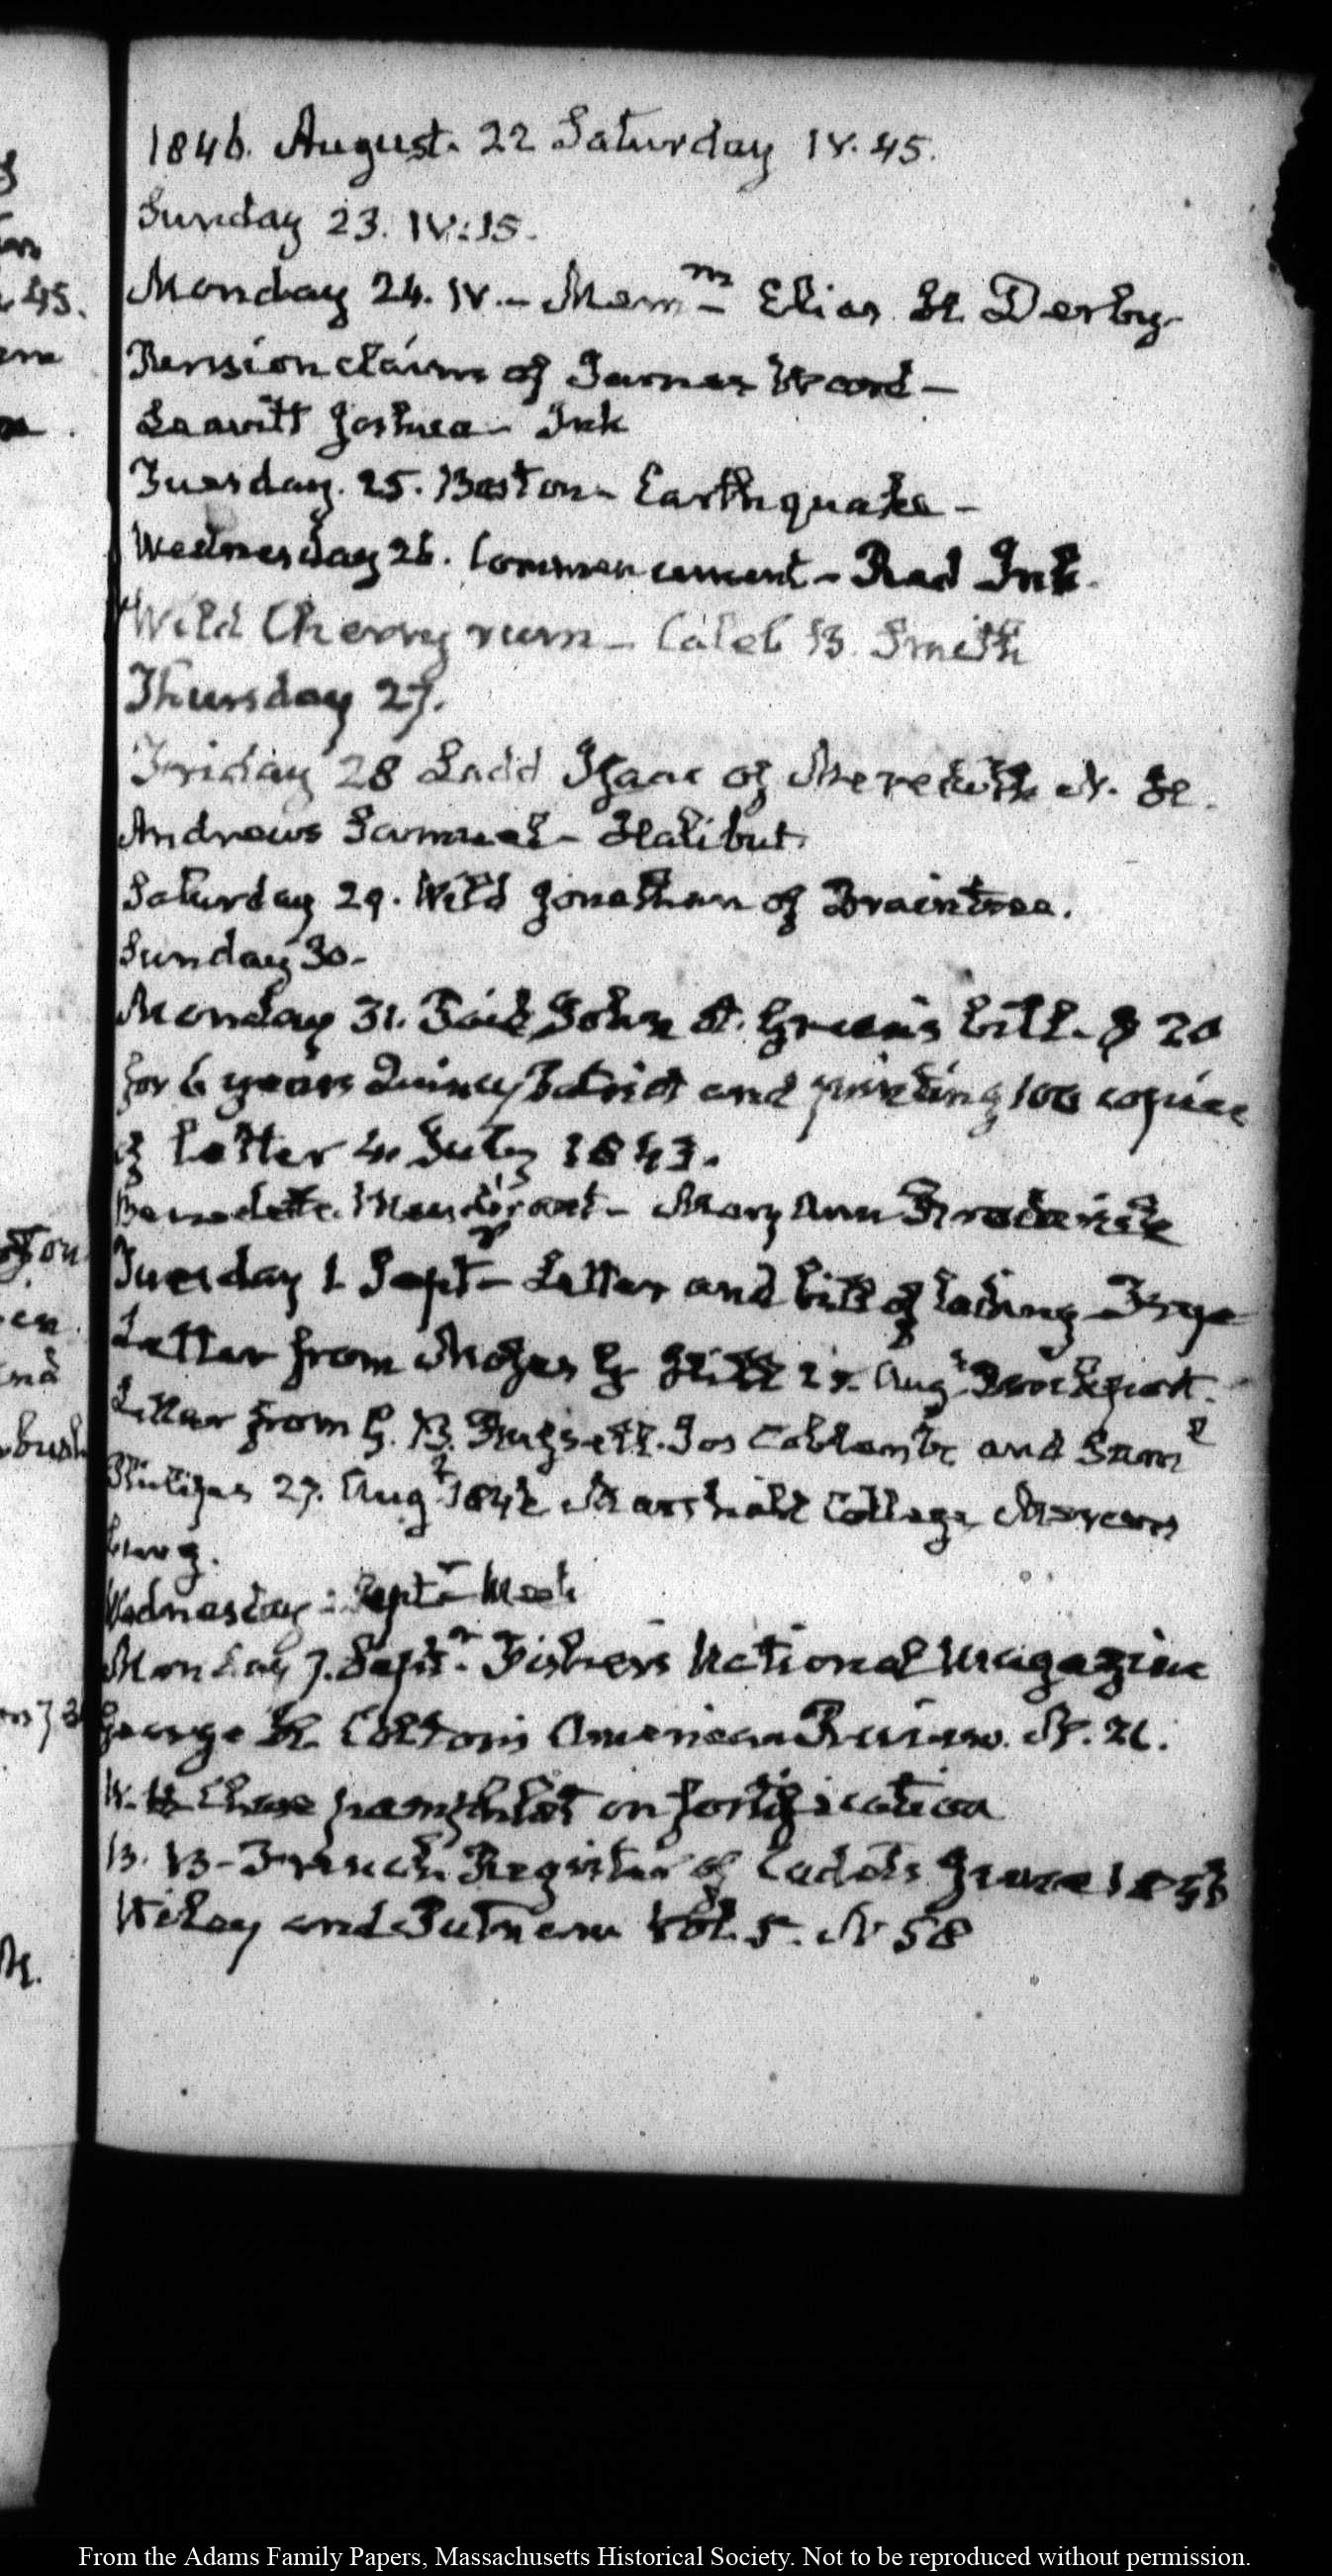 1846. August. 22 Saturday IV. 45.
Sunday 23. IV:15.
Monday 24. IV.- Mem.m Elias H. Derby-
Pension claim of James Wood-
Leavitt Joshua- Ink
Tuesday. 25. Boston- Earthquake-
Wednesday 26. Commencement- Red Ink.
Wild Cherry rum- Caleb B. Smith
Thursday 27.
Friday 28 Ladd Isaac of Meredith N. H.
Andrews Samuel- Halibut.
Saturday 29. Wild Jonathan of Braintree.
Sunday 30-
Monday 31. Paid John A. Green's bill- $ 20
for 6 years Quincy Patriot and printing 100 copies
of Letter 4. July 1843.
Mary Ann
Tuesday 1 Septr- Letter and bill of lading
Letter from Moses G 25. Augt
Letter from G. B. Jos and Saml
27. Augt 1846 Marshall College Mercers
burg.
Wednesday Septr-
Monday 7. Septr. Fisher's National Magazine
George H. Colton's American Review. N. 21.
W. H Chase pamphlet on fortification
B. B- French. Register of Cadets June 1846
Wiley and Putnam Vol. 5. N 58
ton
en
bush
45.
From the Adams Family Papers, Massachusetts Historical Society. Not to be reproduced without permission.